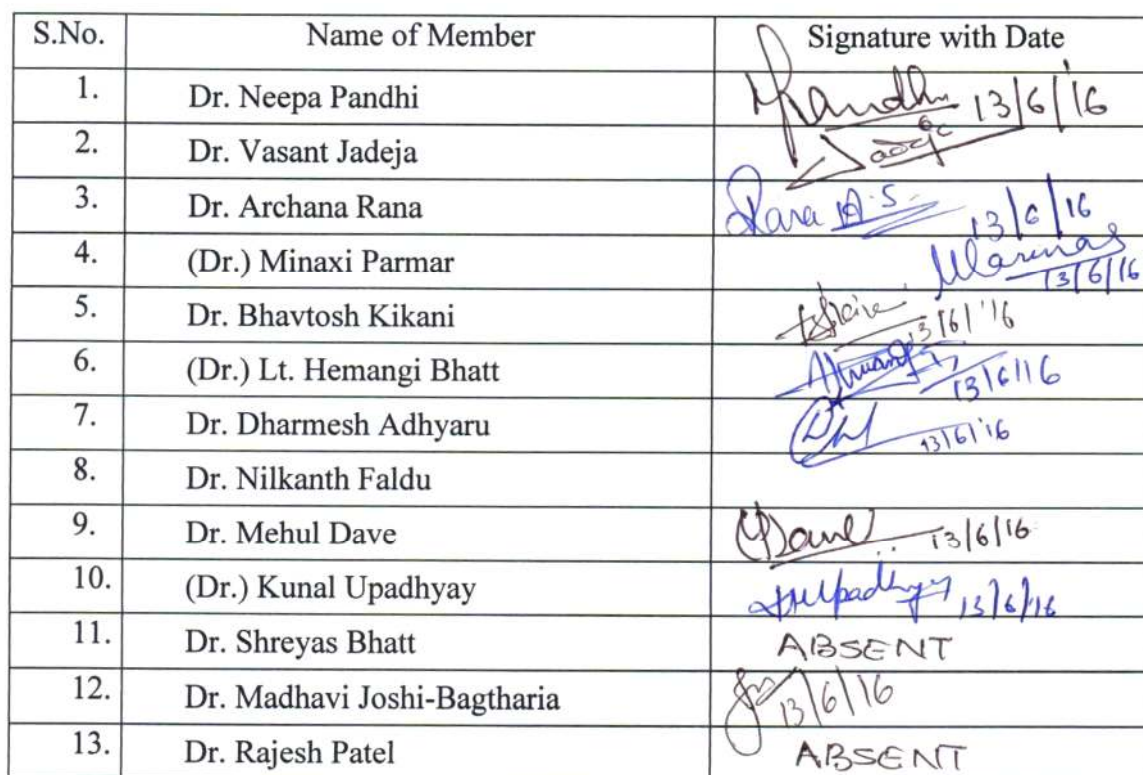 S.No. Name of Member Signature with Date
1. Dr. Neepa Pandhi 13/6/'16
2. Dr. Vasant Jadeja
3. Dr. Archana Rana Rana A.S. 13/6/16
4. (Dr.) Minaxi Parmar 13/6/16
5. Dr. Bhavtosh Kikani 13/6/'16
6. (Dr.) Lt. Hemangi Bhatt 13/6/16
7. Dr. Dharmesh Adhyaru 13/6/'16
8. Dr. Nilkanth Faldu
9. Dr. Mehul Dave 13/6/16
10. (Dr.) Kunal Upadhyay 13/6/16
11. Dr. Shreyas Bhatt ABSENT
12. Dr. Madhavi Joshi-Bagtharia 13/6/16
13. Dr. Rajesh Patel ABSENT